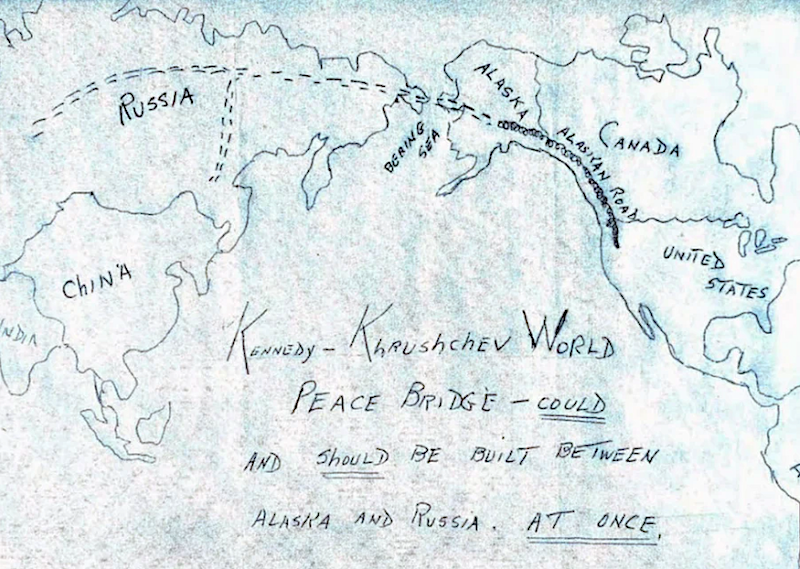 ALASKA
RUSSIA
CANADA
BERING
SEA
ALASKAN ROAD
UNITED
STATES
CHINA
INDIA
KENNEDY - KHRUSHCHEV WORLD
PEACE BRIDGE - COULD
AND SHOULD BE BUILT BETWEEN
ALASKA AND RUSSIA. AT ONCE.